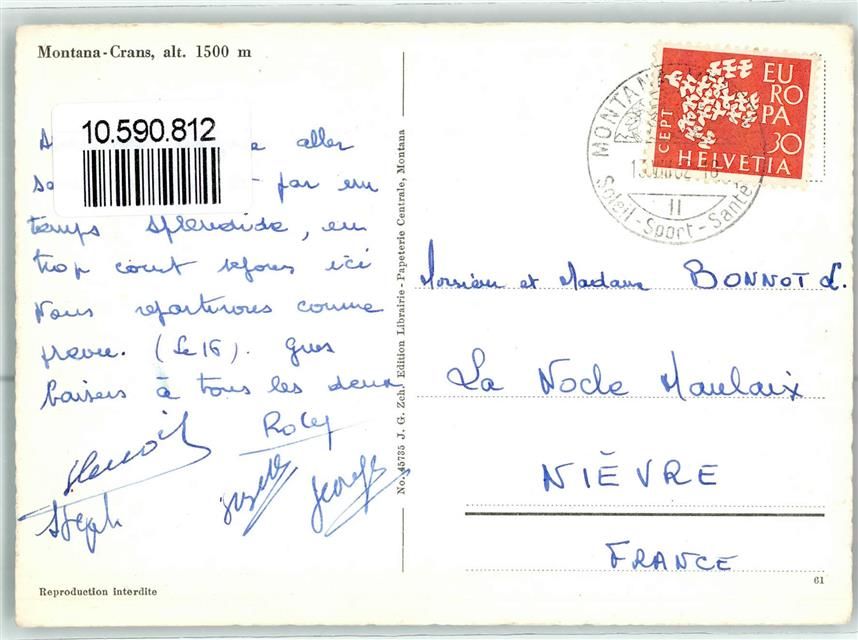 Montana-Crans, alt. 1500 m
10.590.812
aller
par un
temps splendide, un
trop court séjour ici
Nous repartirons comme
prévu. (Le 16). Gros
baisers à tous les deux
Benoit
Roby
Steph
Gisèle
Georges
No. 45735 J. G. Zeh, Edition Librairie-Papeterie Centrale, Montana
EUROPA
CEPT
30
HELVETIA
MONTANA
II
Soleil-Sport-Santé
Monsieur et Madame BONNOT L.
La Nocle Maulaix
NIÈVRE
FRANCE
61
Reproduction interdite